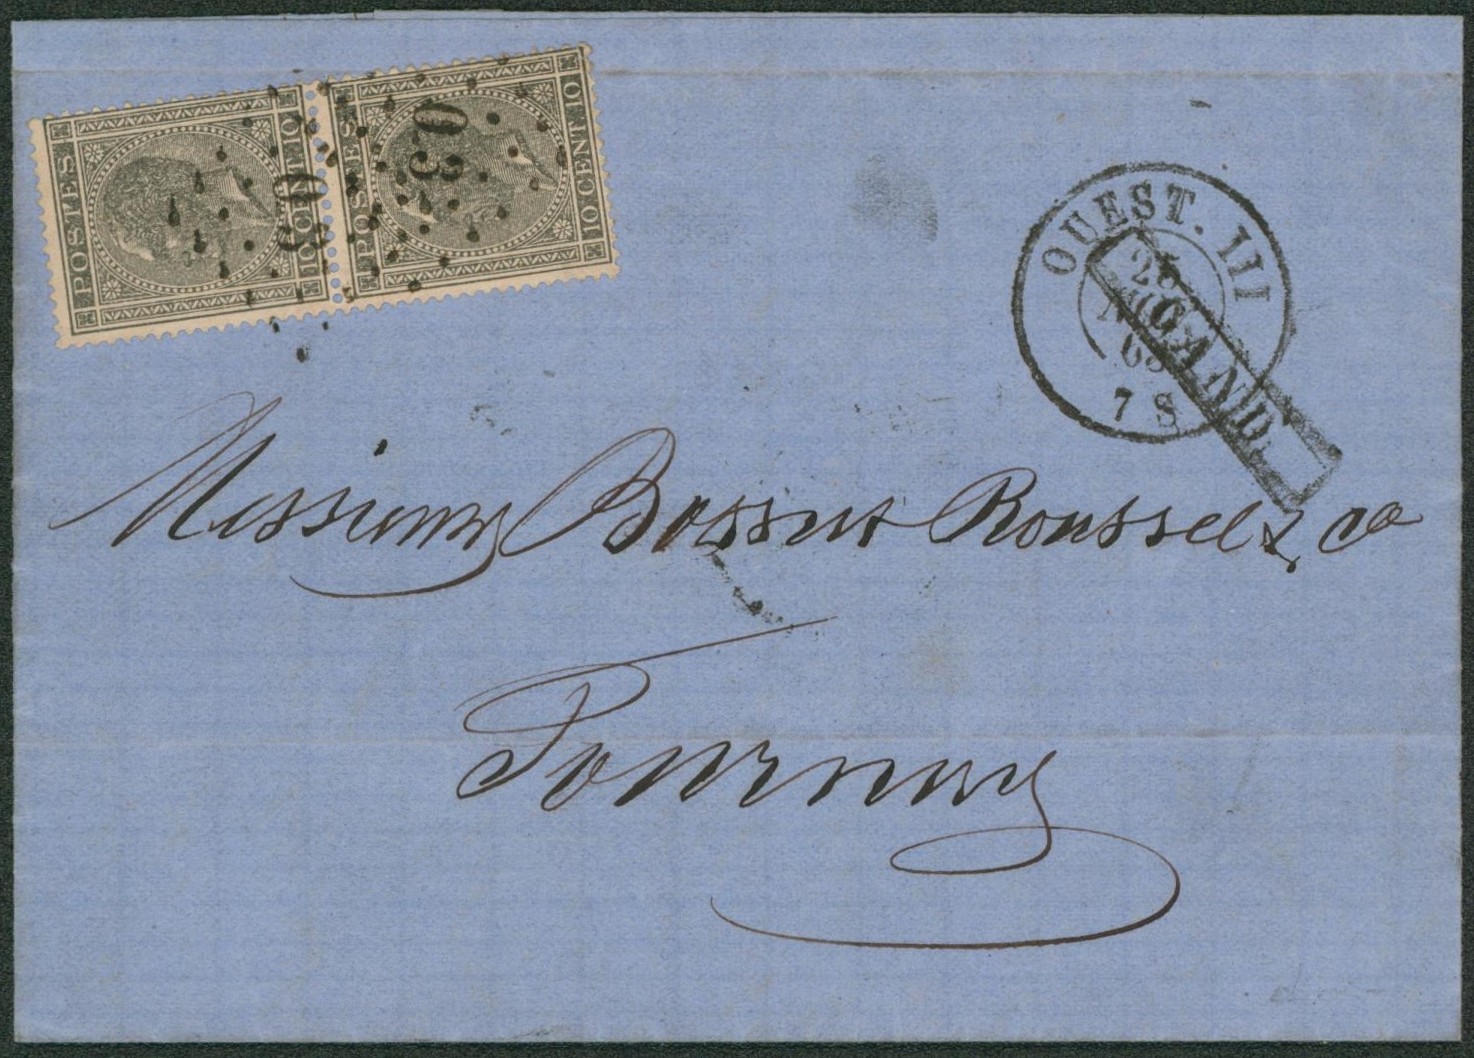 POSTES 10 CENT. 10
POSTES 10 CENT. 10
OUEST. III
25
7 S
GAND.
Messieurs Bossut Roussel & co
Tournay